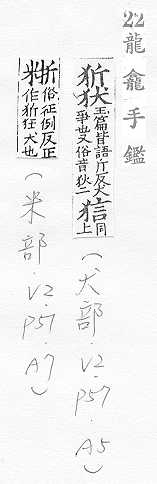 22龍龕手鑑
㹞㹜玉篇皆語斤反犬
爭也又俗音犾二㹤同上
(犬部.V2.P57.A5)
俗征例反正
作狾狂犬也
(米部.V2.P57.A7)